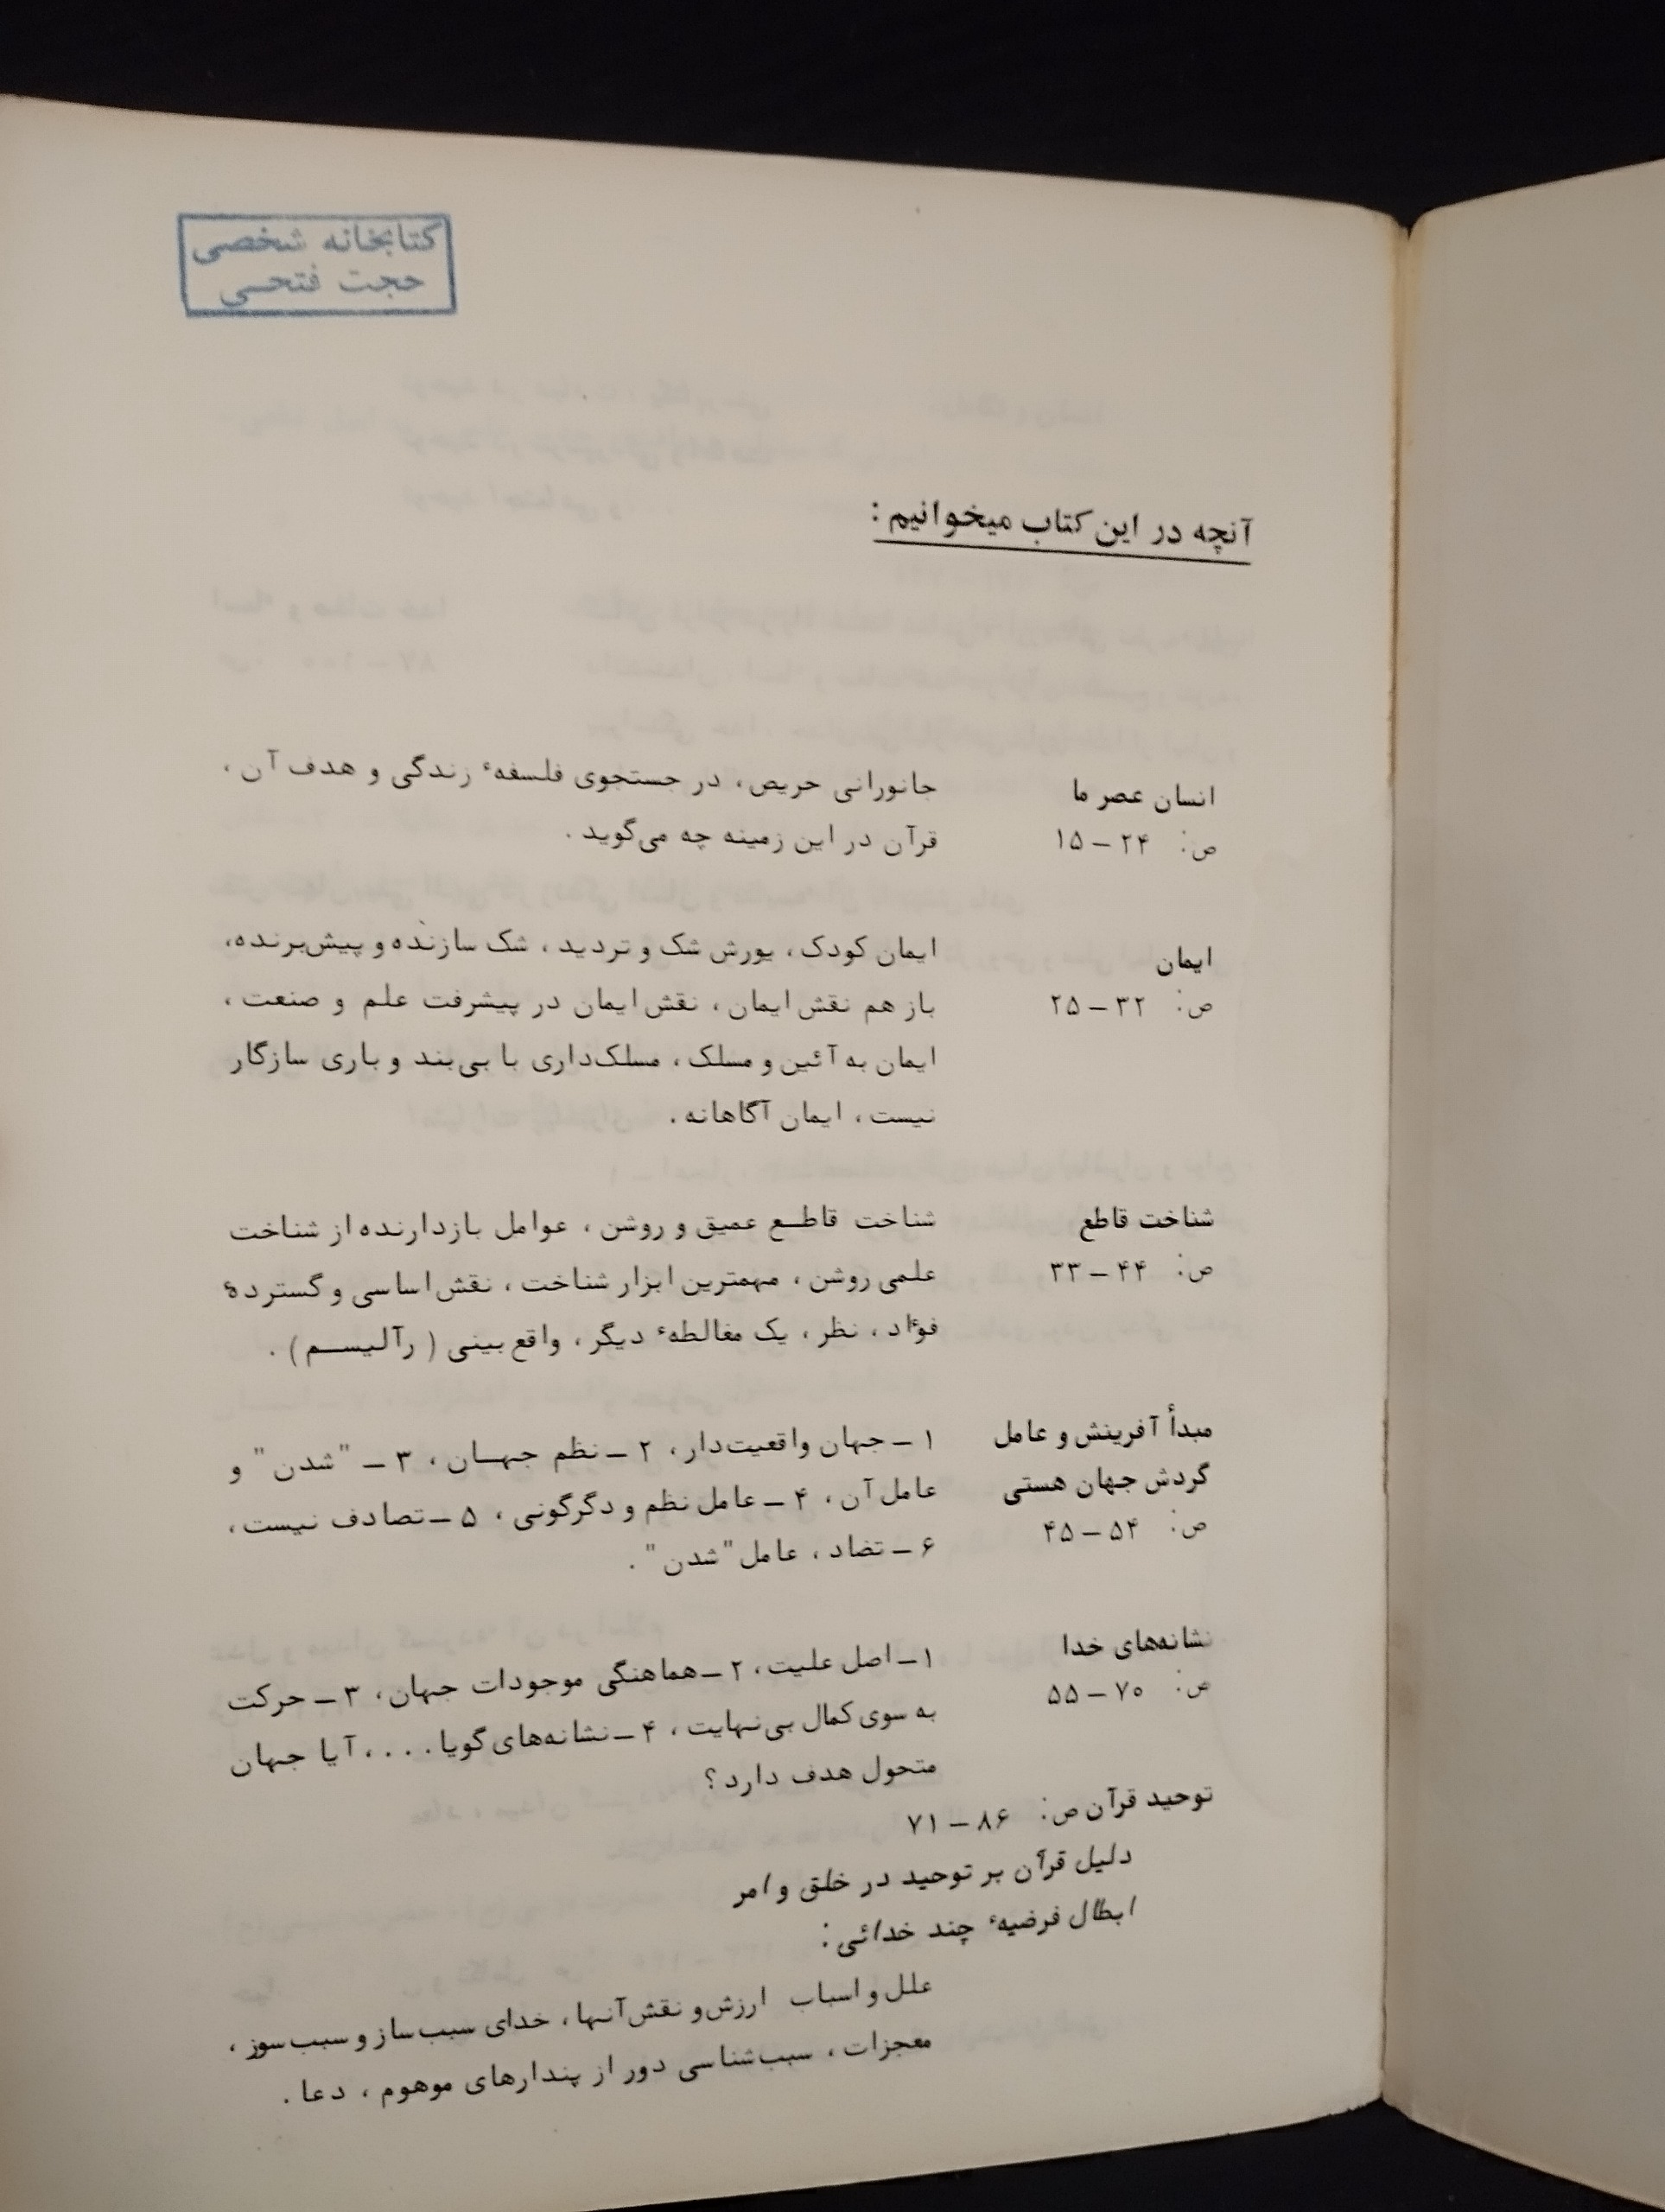 کتابخانه شخصی
حجت فتحی
آنچه در این کتاب میخوانیم:
انسان عصر ما
ص: ۲۴ – ۱۵
جانورانی حریص، در جستجوی فلسفهٔ زندگی و هدف آن،
قرآن در این زمینه چه می‌گوید.
ایمان
ص: ۳۲ – ۲۵
ایمان کودک، یورش شک و تردید، شک سازنده و پیش‌برنده،
باز هم نقش ایمان، نقش ایمان در پیشرفت علم و صنعت،
ایمان به آئین و مسلک، مسلک‌داری با بی‌بند و باری سازگار
نیست، ایمان آگاهانه.
شناخت قاطع
ص: ۴۴ – ۳۳
شناخت قاطع عمیق و روشن، عوامل بازدارنده از شناخت
علمی روشن، مهمترین ابزار شناخت، نقش اساسی و گستردهٔ
فؤاد، نظر، یک مغالطهٔ دیگر، واقع بینی (رآلیسم).
مبدأ آفرینش و عامل
گردش جهان هستی
ص: ۵۴ – ۴۵
۱ – جهان واقعیت‌دار، ۲ – نظم جهان، ۳ – "شدن" و
عامل آن، ۴ – عامل نظم و دگرگونی، ۵ – تصادف نیست،
۶ – تضاد، عامل "شدن".
نشانه‌های خدا
ص: ۷۰ – ۵۵
۱ – اصل علیت، ۲ – هماهنگی موجودات جهان، ۳ – حرکت
به سوی کمال بی‌نهایت، ۴ – نشانه‌های گویا....، آیا جهان
متحول هدف دارد؟
توحید قرآن ص: ۸۶ – ۷۱
دلیل قرآن بر توحید در خلق و امر
ابطال فرضیهٔ چند خدائی:
علل و اسباب ارزش و نقش آنها، خدای سبب‌ساز و سبب‌سوز،
معجزات، سبب‌شناسی دور از پندارهای موهوم، دعا.